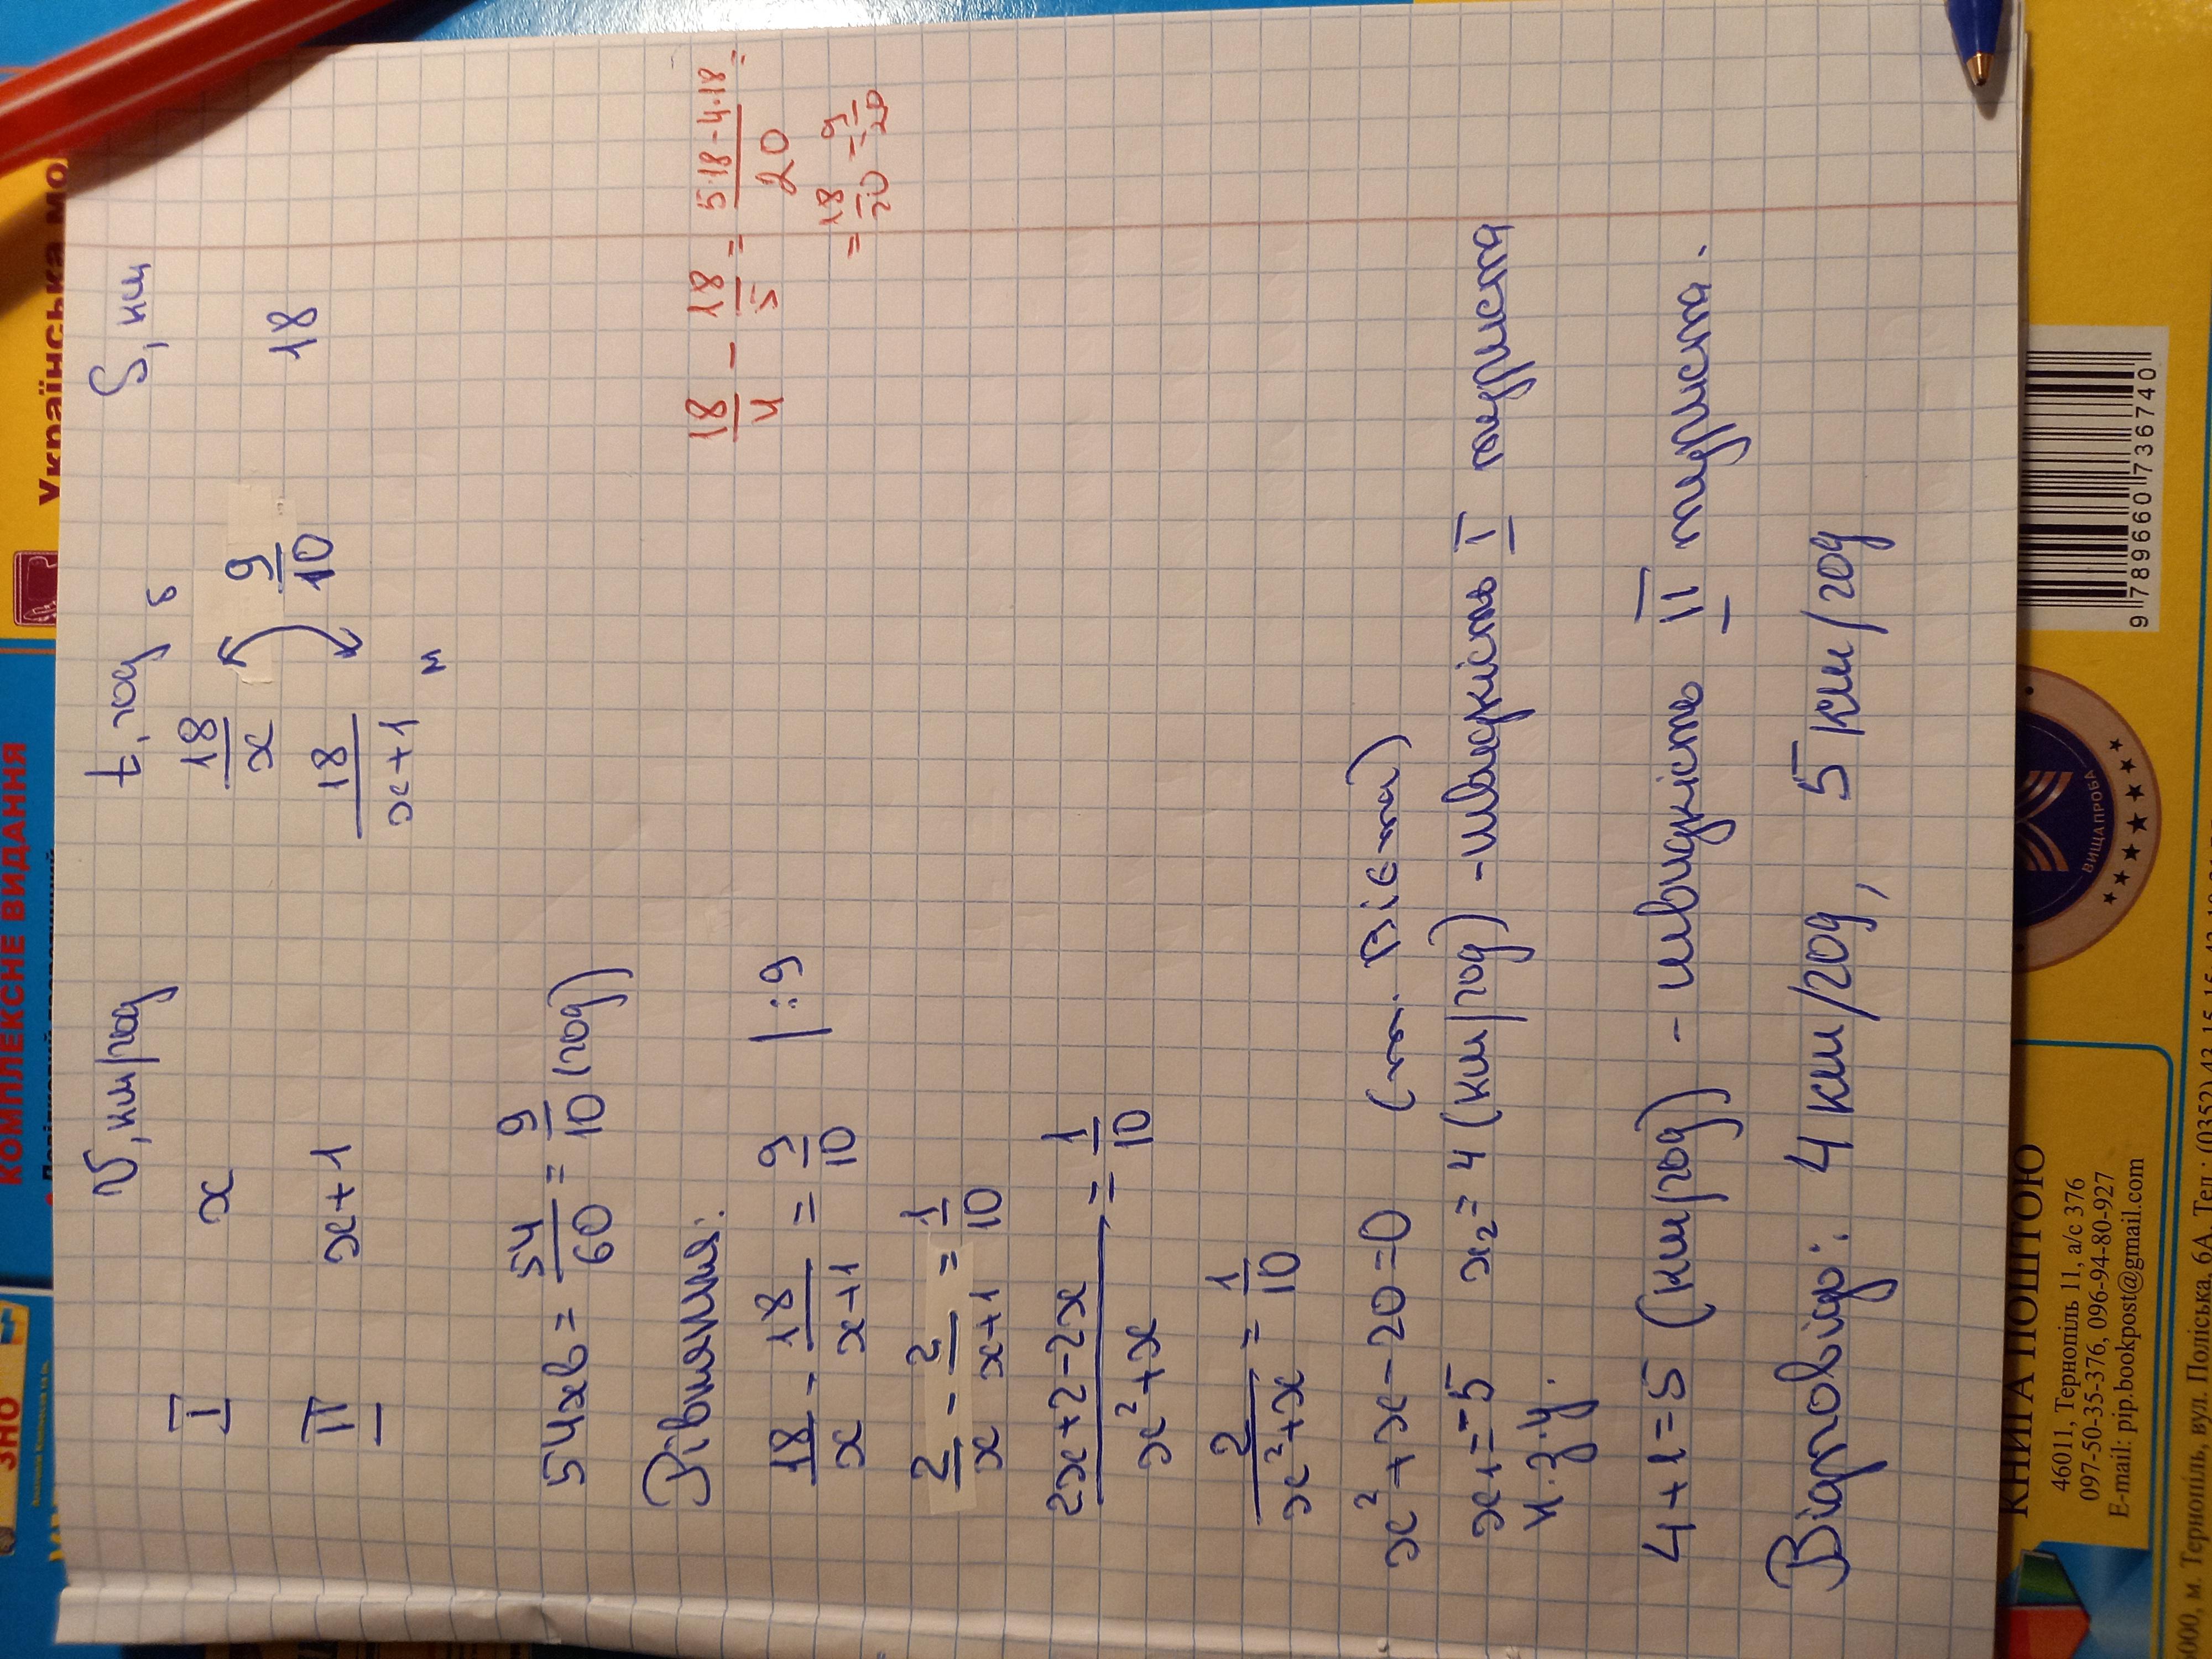 V, км/год t, год S, км
I x 18/x б
9/10 18
II x+1 18/(x+1) м
54хв = 54/60 = 9/10 (год)
Рівняння:
18/x - 18/(x+1) = 9/10 |:9
2/x - 2/(x+1) = 1/10
(2x+2-2x)/(x²+x) = 1/10
2/(x²+x) = 1/10
x²+x-20=0 (т. Вієта)
x₁=-5 x₂=4 (км/год) - швидкість I туриста
н.з.у.
4+1=5 (км/год) - швидкість II туриста.
Відповідь: 4 км/год, 5 км/год
18/4 - 18/5 = (5·18-4·18)/20 =
= 18/20 = 9/20
ЗНО
КОМПЛЕКСНЕ ВИДАННЯ
Українська мо
КНИГА ПОШТОЮ
46011, Тернопіль 11, а/с 376
097-50-35-376, 096-94-80-927
E-mail: pip.bookpost@gmail.com
ВИЩАПРОБА
9 789660 736740
000, м. Тернопіль, вул. Поліська, 6А. Тел.: (0352)